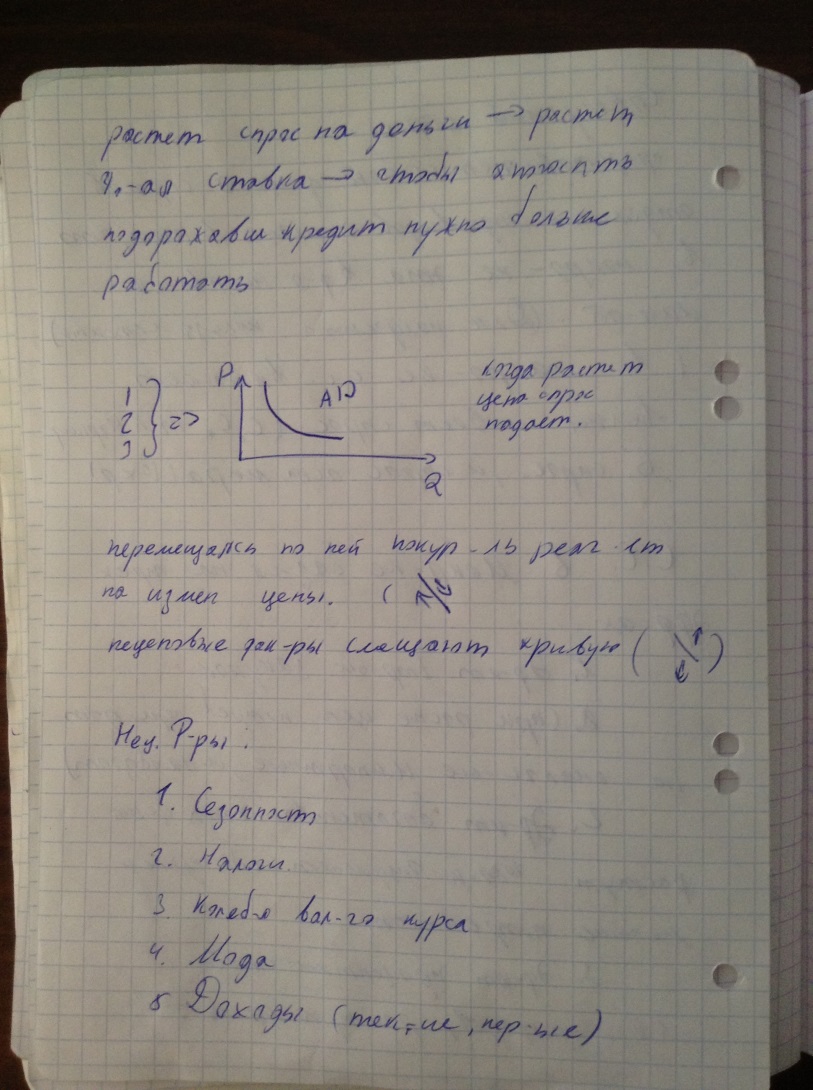 растет спрос на деньги → растет
%-ая ставка → чтобы
подорожавш кредит нужно больше
работать
1
2
3
=>
P
AD
Q
когда растет
цена спрос
падает.
перемещаясь по ней покуп-ль реаг-ет
на измен цены. (
неценовые фак-ры смещают кривую ( )
Нец. Р-ры:
1. Сезонность
2. Налоги.
3. Колеб-я вал-го курса
4. Мода
5 Доходы (тек-ие, пер-ые)